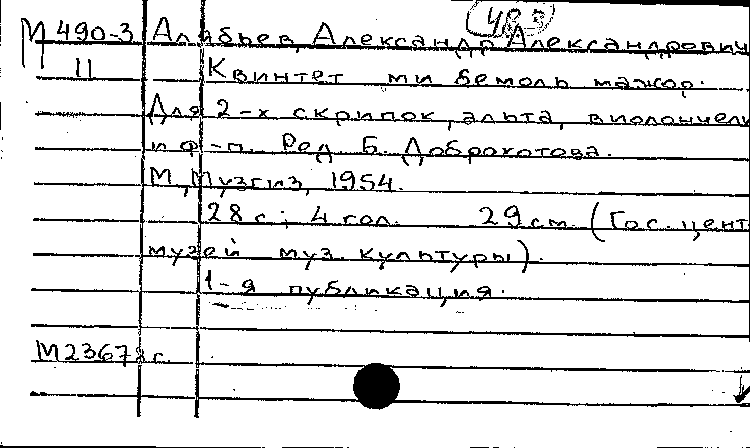 483
М 490-3 Алябьев, Александр Александрович
11 Квинтет ми бемоль мажор.
Для 2-х скрипок, альта, виолончели
и ф-п. Ред. Б. Доброхотова.
М., Музгиз, 1954.
28 с.; 4 гол. 29 см (Гос. цент
музей муз. культуры).
1-я публикация.
М23678 г.